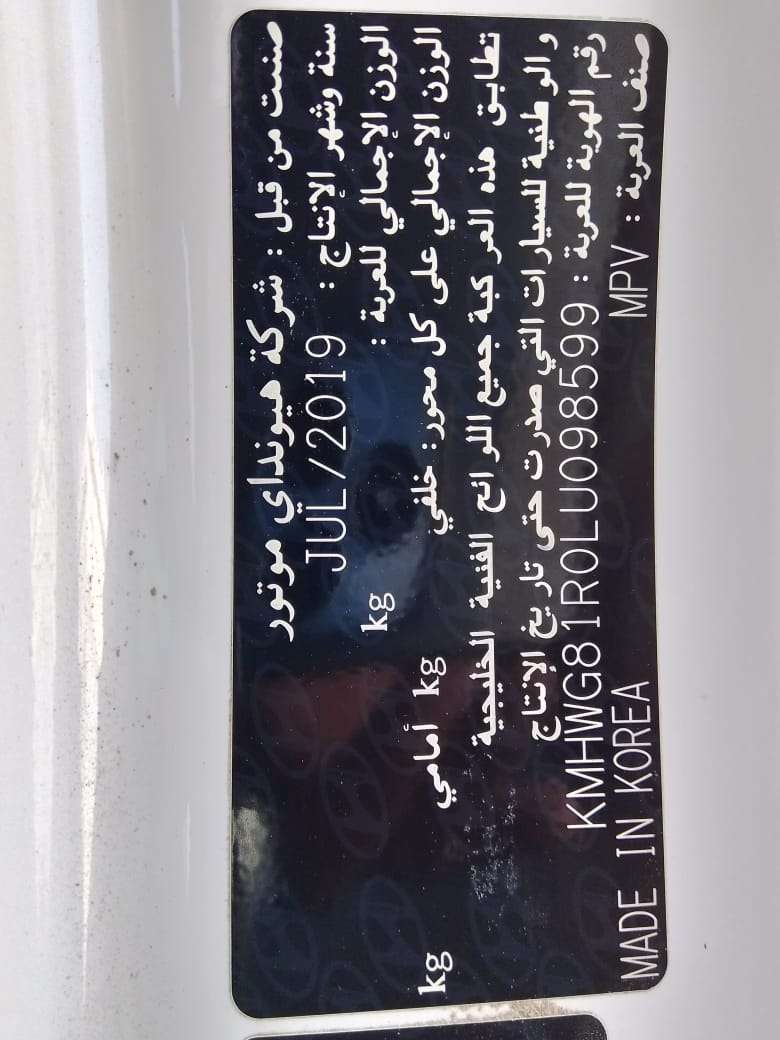 صنعت من قبل : شركة هيونداي موتور
سنة وشهر الإنتاج : JUL/2019
الوزن الإجمالي للعربة : kg
الوزن الإجمالي على كل محور: خلفي kg أمامي kg
تطابق هذه العر كبة جميع اللوائح الفنية الخليجية
و الو طنية للسيارات التي صدرت حتى تاريخ الإنتاج
رقم الهوية للعربة : KMHWG81R0LU098599
صنف العربة : MPV MADE IN KOREA